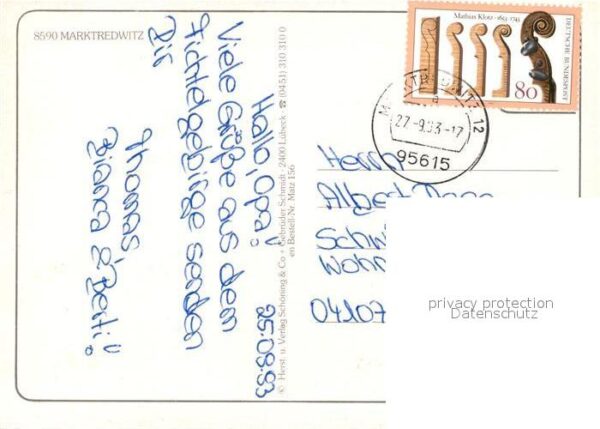 8590 MARKTREDWITZ
25.09.93
Hallo, Opa!
Viele Grüße aus dem
Fichtelgebirge senden
Dir
Thomas,
Bianca & Berti!
© Herst. u. Verlag Schöning & Co + Gebrüder Schmidt · 2400 Lübeck ☎ (0451) 310 310 0
en Bestell-Nr. Matz 156
Mathias Klotz · 1653-1743
DEUTSCHE BUNDESPOST
80
12
27.-9.93-17
95615
Herrn
Albert
Schw
Wohn
04107
privacy protection
Datenschutz